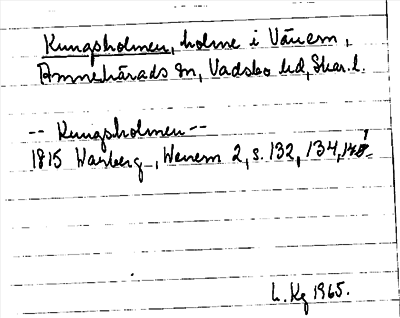 Kungsholmen, holme i Vänern,
Amnehärads sn, Vadsbo hd, Skar. l.
-- Kungsholmen --
1815 Warberg, Wenern 2, s. 132, 134, 148.
L. Kg 1965.